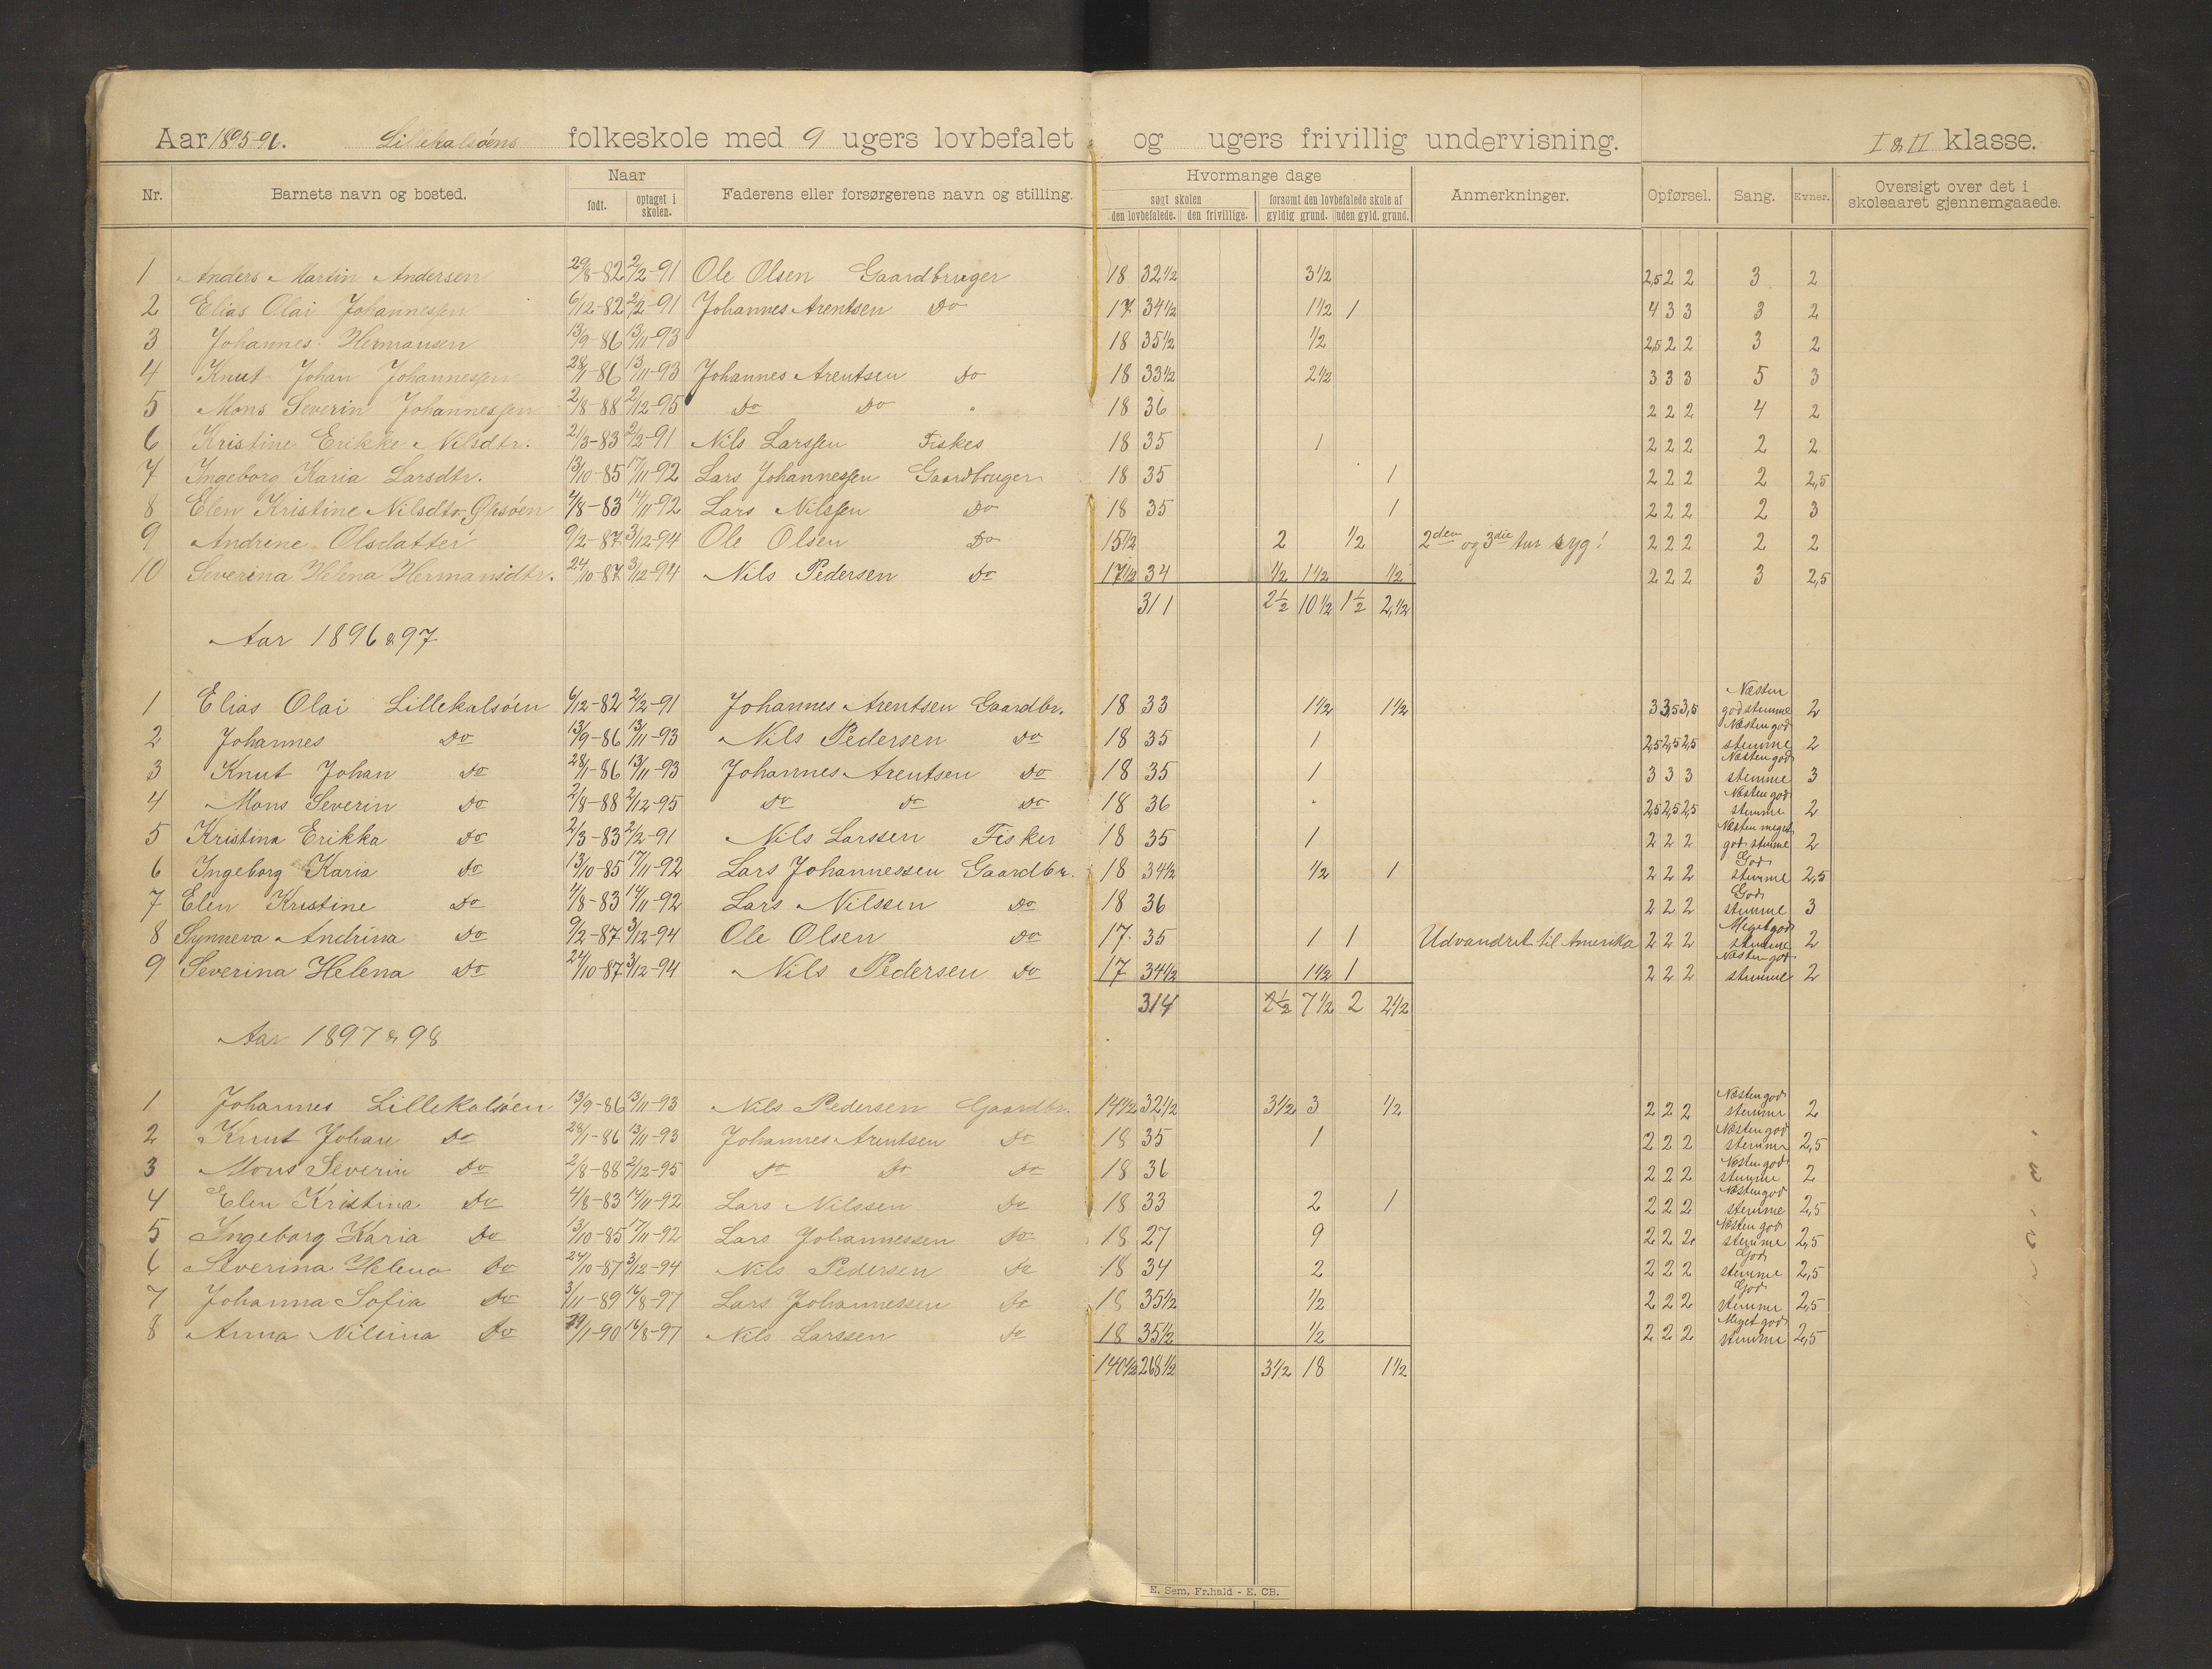 Aar 1895-96. Lillekalsøens folkeskole med 9 ugers lovbefalet og ugers frivillig undervisning. I & II klasse.
Nr. Barnets navn og bosted. Naar født. optaget i skolen. Faderens eller forsørgerens navn og stilling. Hvormange dage søgt skolen den lovbefalede. den frivillige. forsømt den lovbefalede skole af gyldig grund. uden gyld. grund. Anmerkninger. Opførsel. Sang. Evner. Oversigt over det i skoleaaret gjennemgaaede.
1 Anders Martin Andersen 29/8-82 2/2-91 Ole Olsen Gaardbruger 18 32 1/2 3 1/2 2,5 2 2 3 2
2 Elias Olai Johannessen 6/12-82 2/2-91 Johannes Arentsen Do 17 34 1/2 1 1/2 1 4 3 3 3 2
3 Johannes Hermansen 13/9-86 13/11-93 18 35 1/2 1/2 2,5 2 2 3 2
4 Knut Johan Johannessen 28/1-86 13/11-93 Johannes Arentsen Do 18 33 1/2 2 1/2 3 3 3 5 3
5 Mons Severin Johannessen 2/8-88 2/12-95 Do Do 18 36 2 2 2 4 2
6 Kristine Erikke Nilsdtr. 21/3-83 2/2-91 Nils Larssen Fisker 18 35 1 2 2 2 2 2
7 Ingeborg Karia Larsdtr. 13/10-85 17/11-92 Lars Johannessen Gaardbruger 18 35 1 2 2 2 2 2,5
8 Elen Kristine Nilsdtr 4/8-83 14/11-92 Lars Nilssen Do 18 35 1 2 2 2 2 3
9 Andrene Olsdatter 9/2-87 3/12-94 Ole Olsen Do 15 1/2 2 1/2 2den og 3die tur syg! 2 2 2 2 2
10 Severina Helena Hermansdtr. 24/10-87 3/12-94 Nils Pedersen Do 17 1/2 34 1/2 1 1/2 1/2 2 2 2 3 2,5
311 2 1/2 10 1/2 1 1/2 2 1/2
Aar 1896 & 97
1 Elias Olai Lillekalsøen 6/12-82 2/2-91 Johannes Arentsen Gaardbr. 18 33 1 1/2 1 1/2 3 3,5 3,5 Næsten god stemme 2
2 Johannes Do 13/9-86 13/11-93 Nils Pedersen Do 18 35 1 2,5 2,5 2,5 Næsten god stemme 2
3 Knut Johan Do 28/1-86 13/11-93 Johannes Arentsen Do 18 35 1 3 3 3 Næsten god stemme 3
4 Mons Severin Do 2/8-88 2/12-95 Do Do Do 18 36 2,5 2,5 2,5 Næsten god stemme 2
5 Kristina Erikka Do 2/3-83 2/2-91 Nils Larssen Fisker 18 35 1 2 2 2 Næsten meget god stemme 2
6 Ingeborg Karia Do 13/10-85 17/11-92 Lars Johannessen Gaardbr. 18 34 1/2 1/2 1 2 2 2 God stemme 2,5
7 Elen Kristine Do 4/8-83 14/11-92 Lars Nilssen Do 18 36 2 2 2 God stemme 3
8 Synneva Andrina Do 9/2-87 3/12-94 Ole Olsen Do 17 35 1 1 Udvandret til Amerika 2 2 2 Meget god stemme 2
9 Severina Helena Do 24/10-87 3/12-94 Nils Pedersen Do 17 34 1/2 1 1/2 1 2 2 2 Næsten god stemme 2
314 2 1/2 7 1/2 2 2 1/2
Aar 1897 & 98
1 Johannes Lillekalsøen 13/9-86 13/11-93 Nils Pedersen Gaardbr. 14 1/2 32 1/2 3 1/2 3 1/2 2 2 2 Næsten god stemme 2
2 Knut Johan Do 28/1-86 13/11-93 Johannes Arentsen Do 18 35 1 2 2 2 Næsten god stemme 2,5
3 Mons Severin Do 2/8-88 2/12-95 Do Do Do 18 36 2 2 2 Næsten god stemme 2
4 Elen Kristina Do 4/8-83 14/11-92 Lars Nilssen Do 18 33 2 1 2 2 2 Næsten god stemme 2,5
5 Ingeborg Karia Do 13/10-85 17/11-92 Lars Johannessen Do 18 27 9 2 2 2 Næsten god stemme 2,5
6 Severina Helena Do 24/10-87 3/12-94 Nils Pedersen Do 18 34 2 2 2 2 God stemme 2,5
7 Johanna Sofia Do 3/11-89 16/8-97 Lars Johannessen Do 18 35 1/2 1/2 2 2 2 God stemme 2,5
8 Anna Nilsina Do 29/1-90 16/8-97 Nils Larssen Do 18 35 1/2 1/2 2 2 2 Meget god stemme 2,5
140 1/2 268 1/2 3 1/2 18 1 1/2
E. Sem, Fr.hald - E. CB.